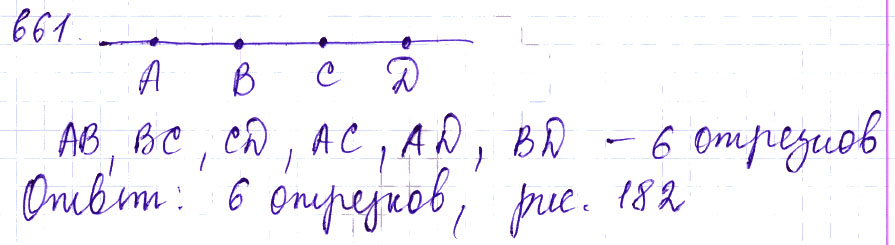 661.
A B C D
AB, BC, CD, AC, AD, BD – 6 отрезков
Ответ: 6 отрезков, рис. 182